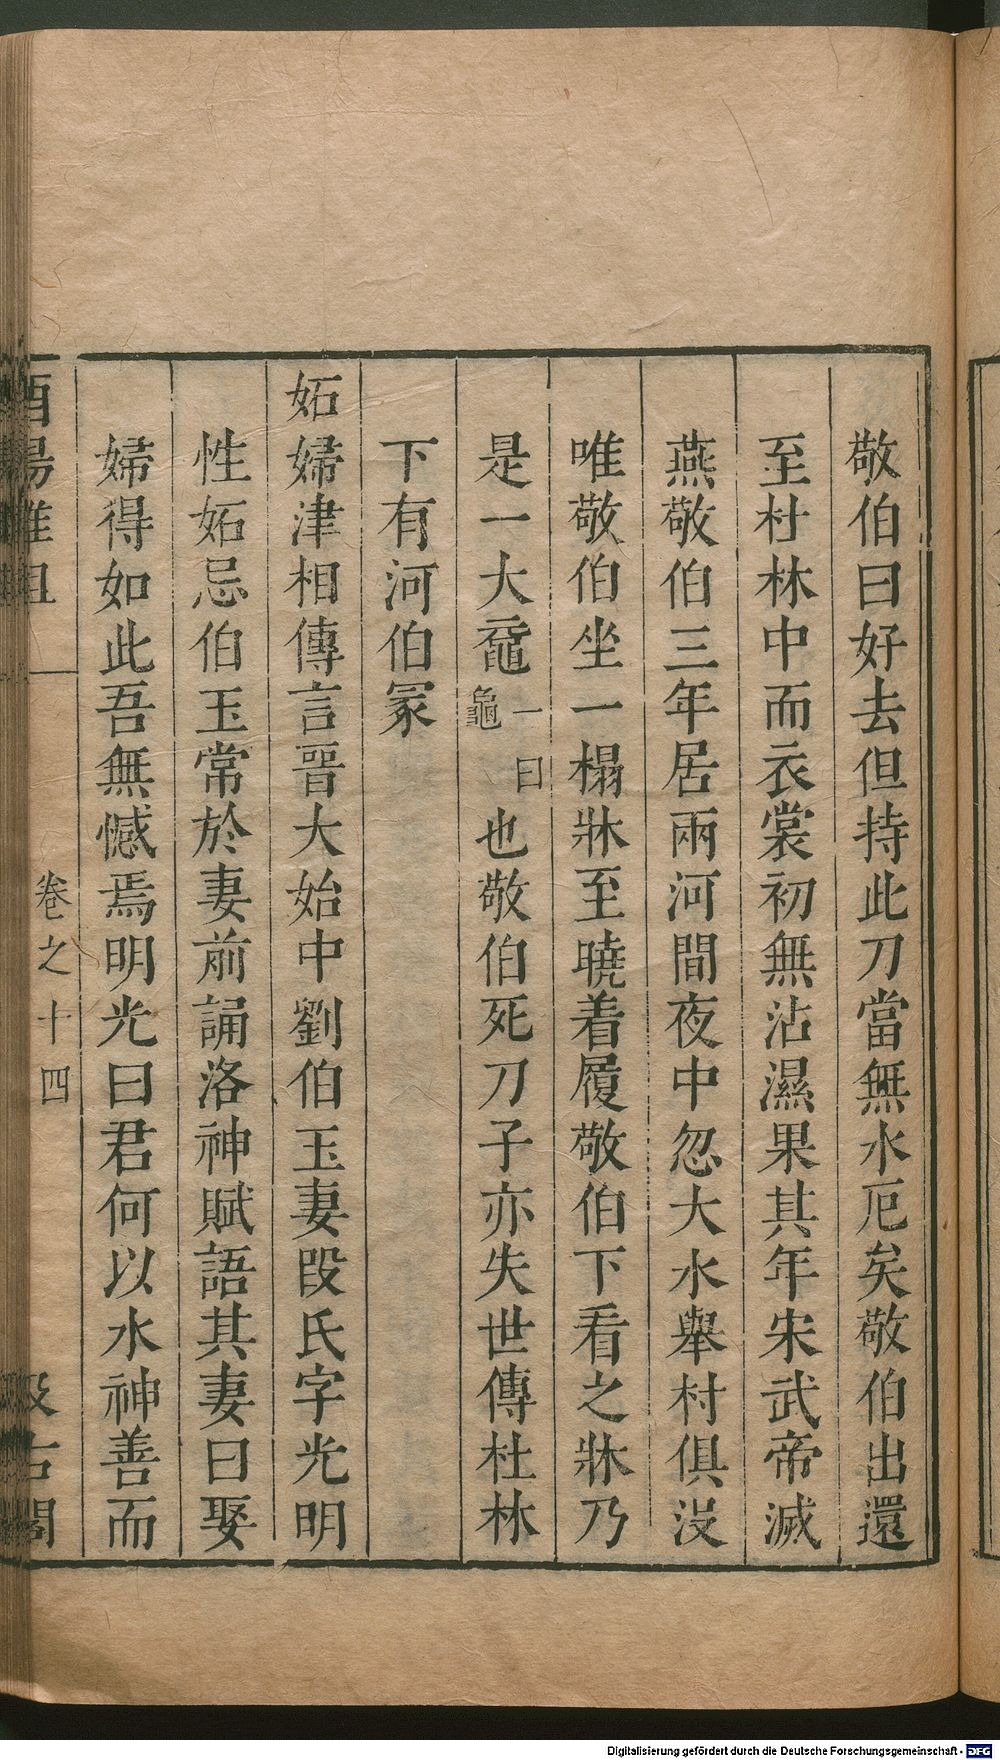 敬伯曰好去但持此刀當無水厄矣敬伯出還
至杜林中而衣裳初無沾濕果其年宋武帝滅
燕敬伯三年居兩河間夜中忽大水舉村俱沒
唯敬伯坐一榻牀至曉着履敬伯下看之牀乃
是一大黿一曰龜也敬伯死刀子亦失世傳杜林
下有河伯冢
妬婦津相傳言晉大始中劉伯玉妻段氏字光明
性妬忌伯玉常於妻前誦洛神賦語其妻曰娶
婦得如此吾無憾焉明光曰君何以水神善而
酉陽雜俎 卷之十四 汲古閣
Digitalisierung gefördert durch die Deutsche Forschungsgemeinschaft - DFG